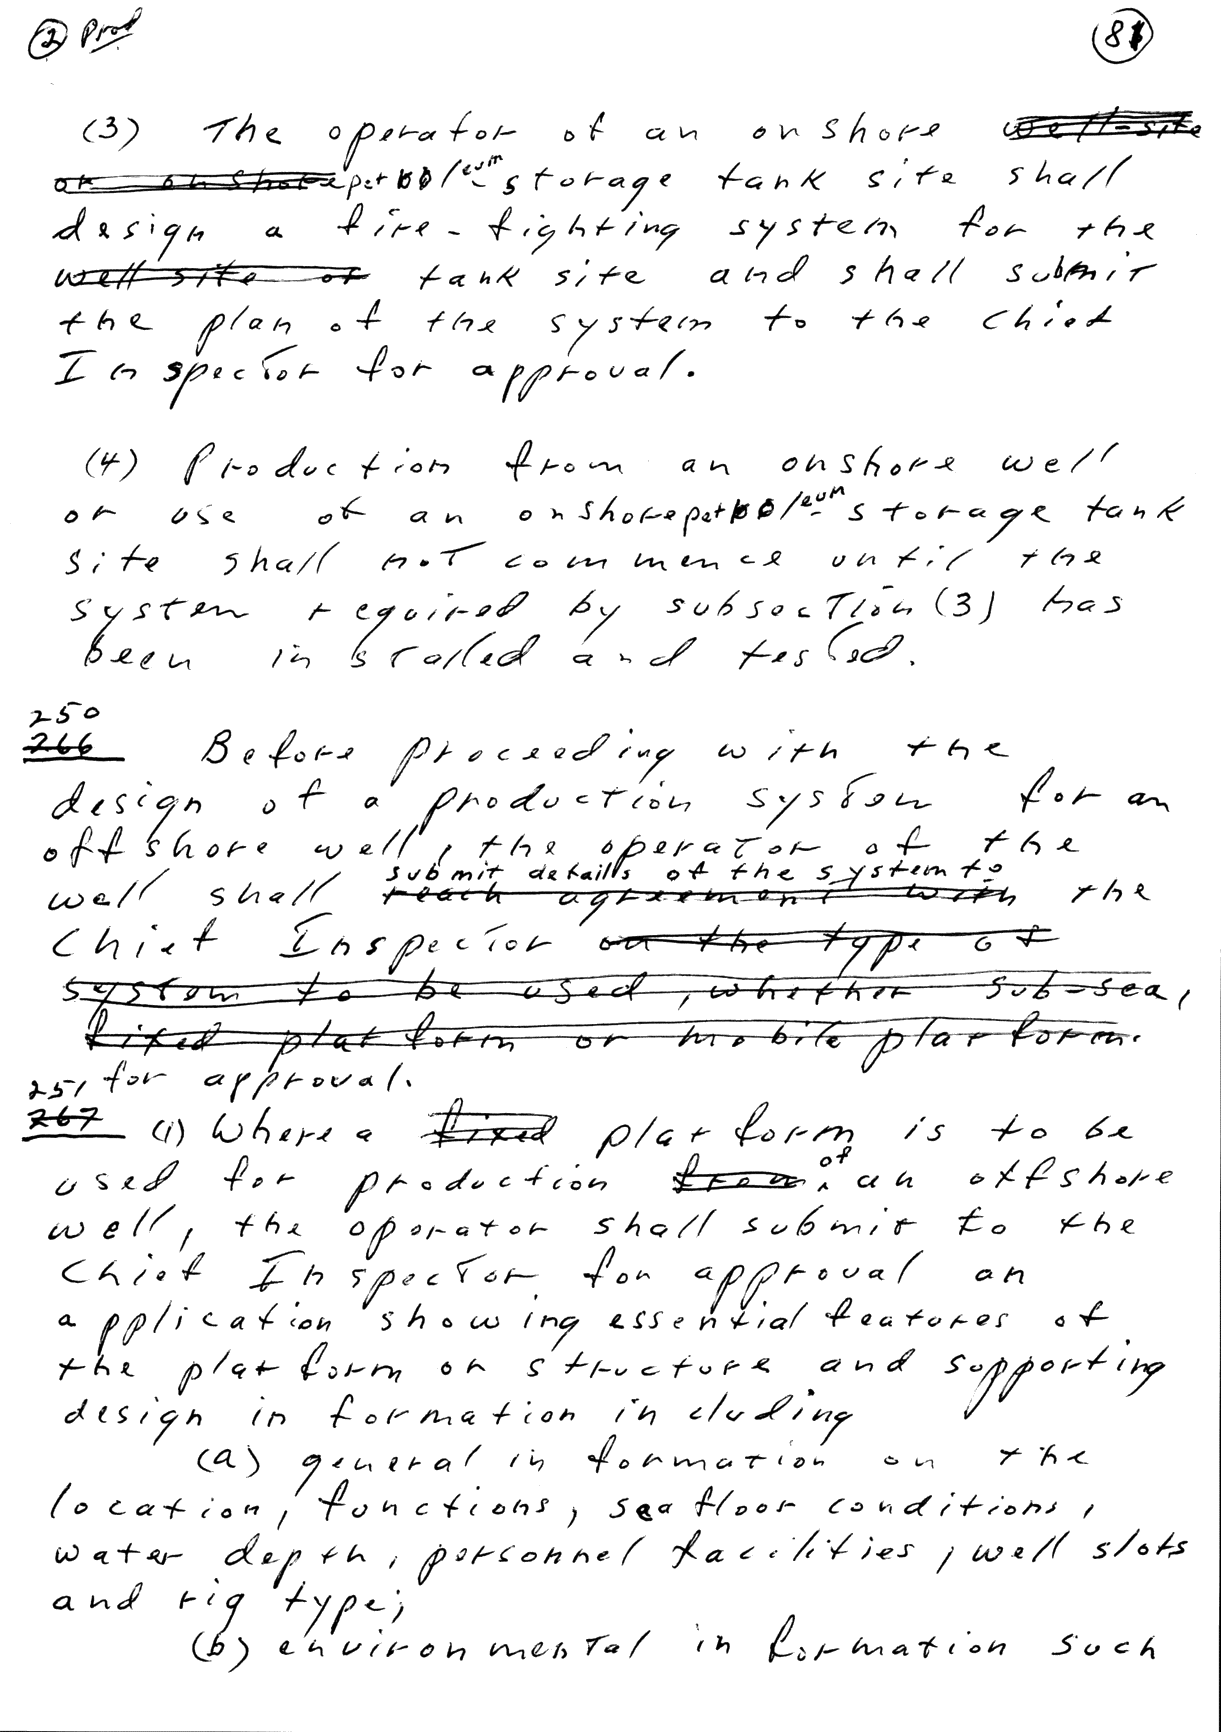 ② Prod
81
(3) The operator of an onshore ~~well-site~~
~~or onshore~~ petroleum storage tank site shall
design a fire-fighting system for the
~~well site or~~ tank site and shall submit
the plan of the system to the Chief
Inspector for approval.
(4) Production from an onshore well
or use of an onshore petroleum storage tank
site shall not commence until the
system required by subsection (3) has
been installed and tested.
250
~~266~~ Before proceeding with the
design of a production system for an
offshore well, the operator of the
submit details of the system to
well shall ~~reach agreement with~~ the
Chief Inspector ~~on the type of~~
~~system to be used, whether sub-sea,~~
~~fixed platform or mobile platform.~~
for approval.
251
~~267~~ (1) Where a ~~fixed~~ platform is to be
used for production ~~from~~ of an offshore
well, the operator shall submit to the
Chief Inspector for approval an
application showing essential features of
the platform or structure and supporting
design information including
(a) general information on the
location, functions, sea floor conditions,
water depth, personnel facilities, well slots
and rig type;
(b) environmental information such